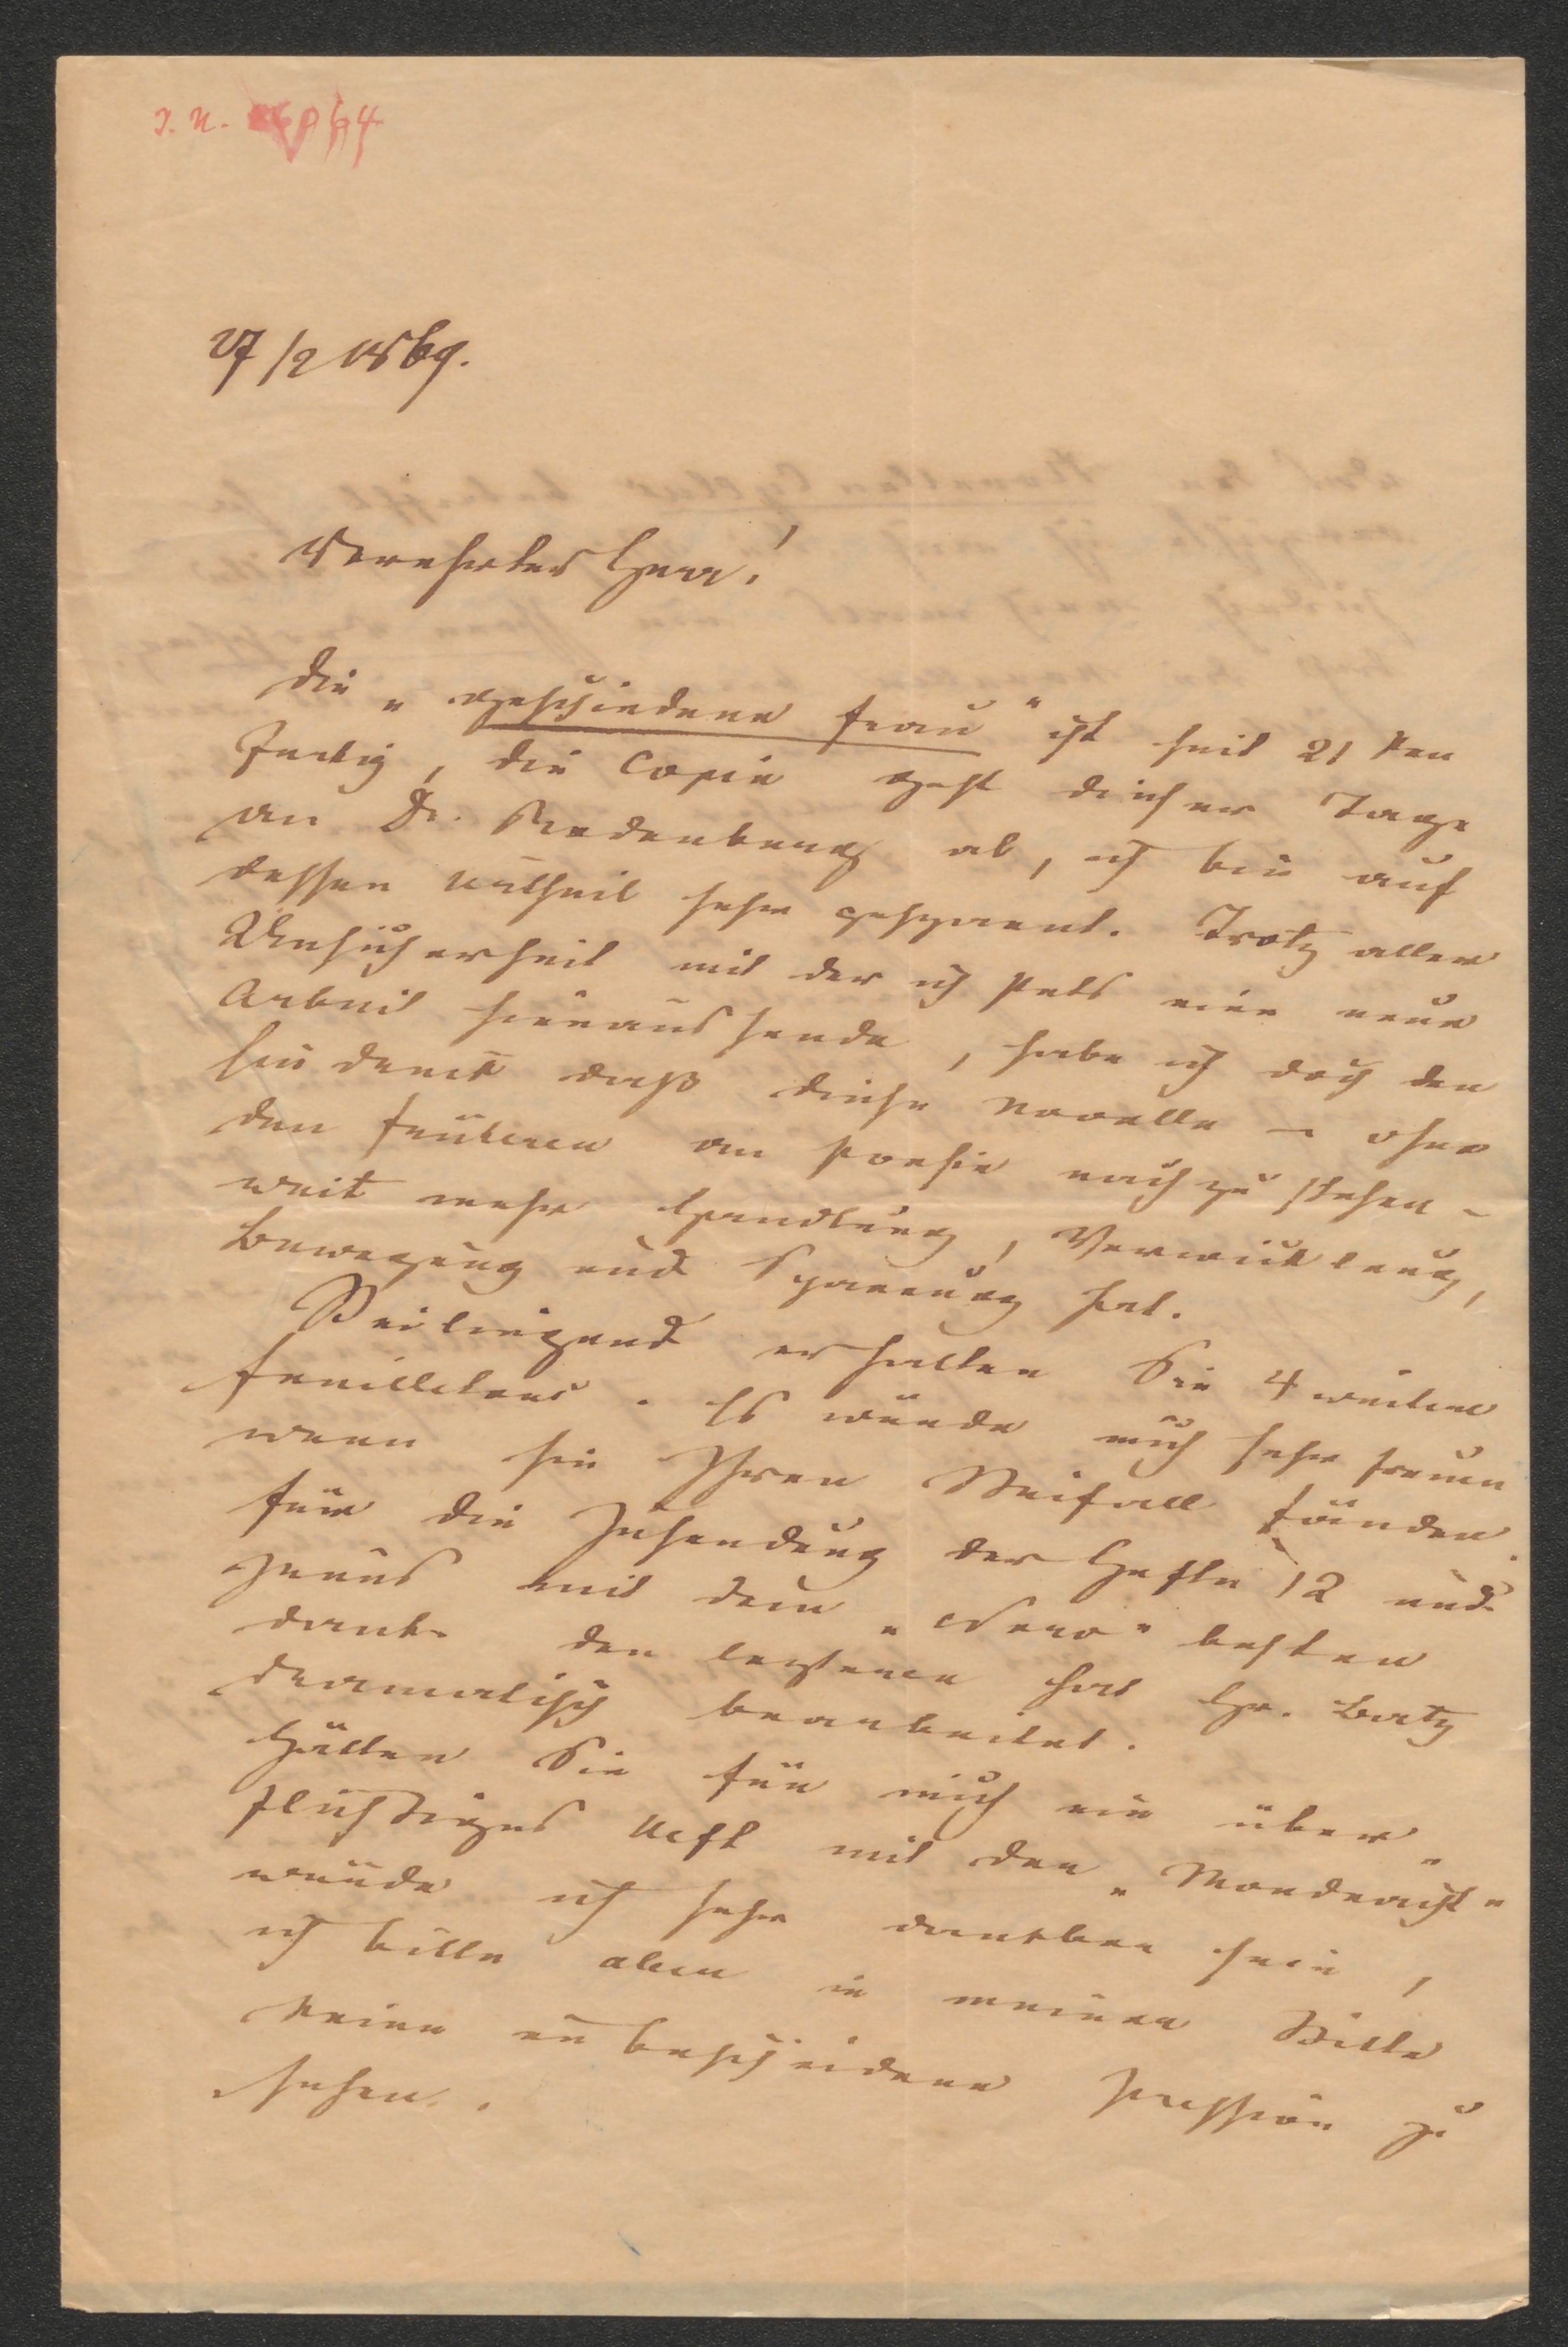 J. N.
27/2 1869.
Verehrter Herr!
Die „geschiedene Frau" ist seit 21 ten
fertig, die Copie geht dieser Tage
an Dr. Rodenberg ab, ich bin auf
dessen Urtheil sehr gespannt. Trotz aller
Unsicherheit mit der ich stets eine neue
Arbeit hinaussende, habe ich doch den
Eindruck daß diese Novelle – ohne
den früheren an Poesie nachzustehen –
weit mehr Handlung, Verwicklung,
Bewegung und Spannung hat.
Beiliegend erhalten Sie 4 weitere
Feuilletons. Es würde mich sehr freuen
wenn sie Ihren Beifall fänden.
Für die Zusendung der Hefte 12 und
jenes mit dem „Nero" besten
Dank. Den letzteren hat Hr. Batz
dramatisch bearbeitet.
Hätten Sie für mich ein über„
flüssiges Heft mit der „Mondnacht"
würde ich sehr dankbar sein,
ich bitte aber in meiner Bitte
keine unbescheidene Pression zu
sehen.